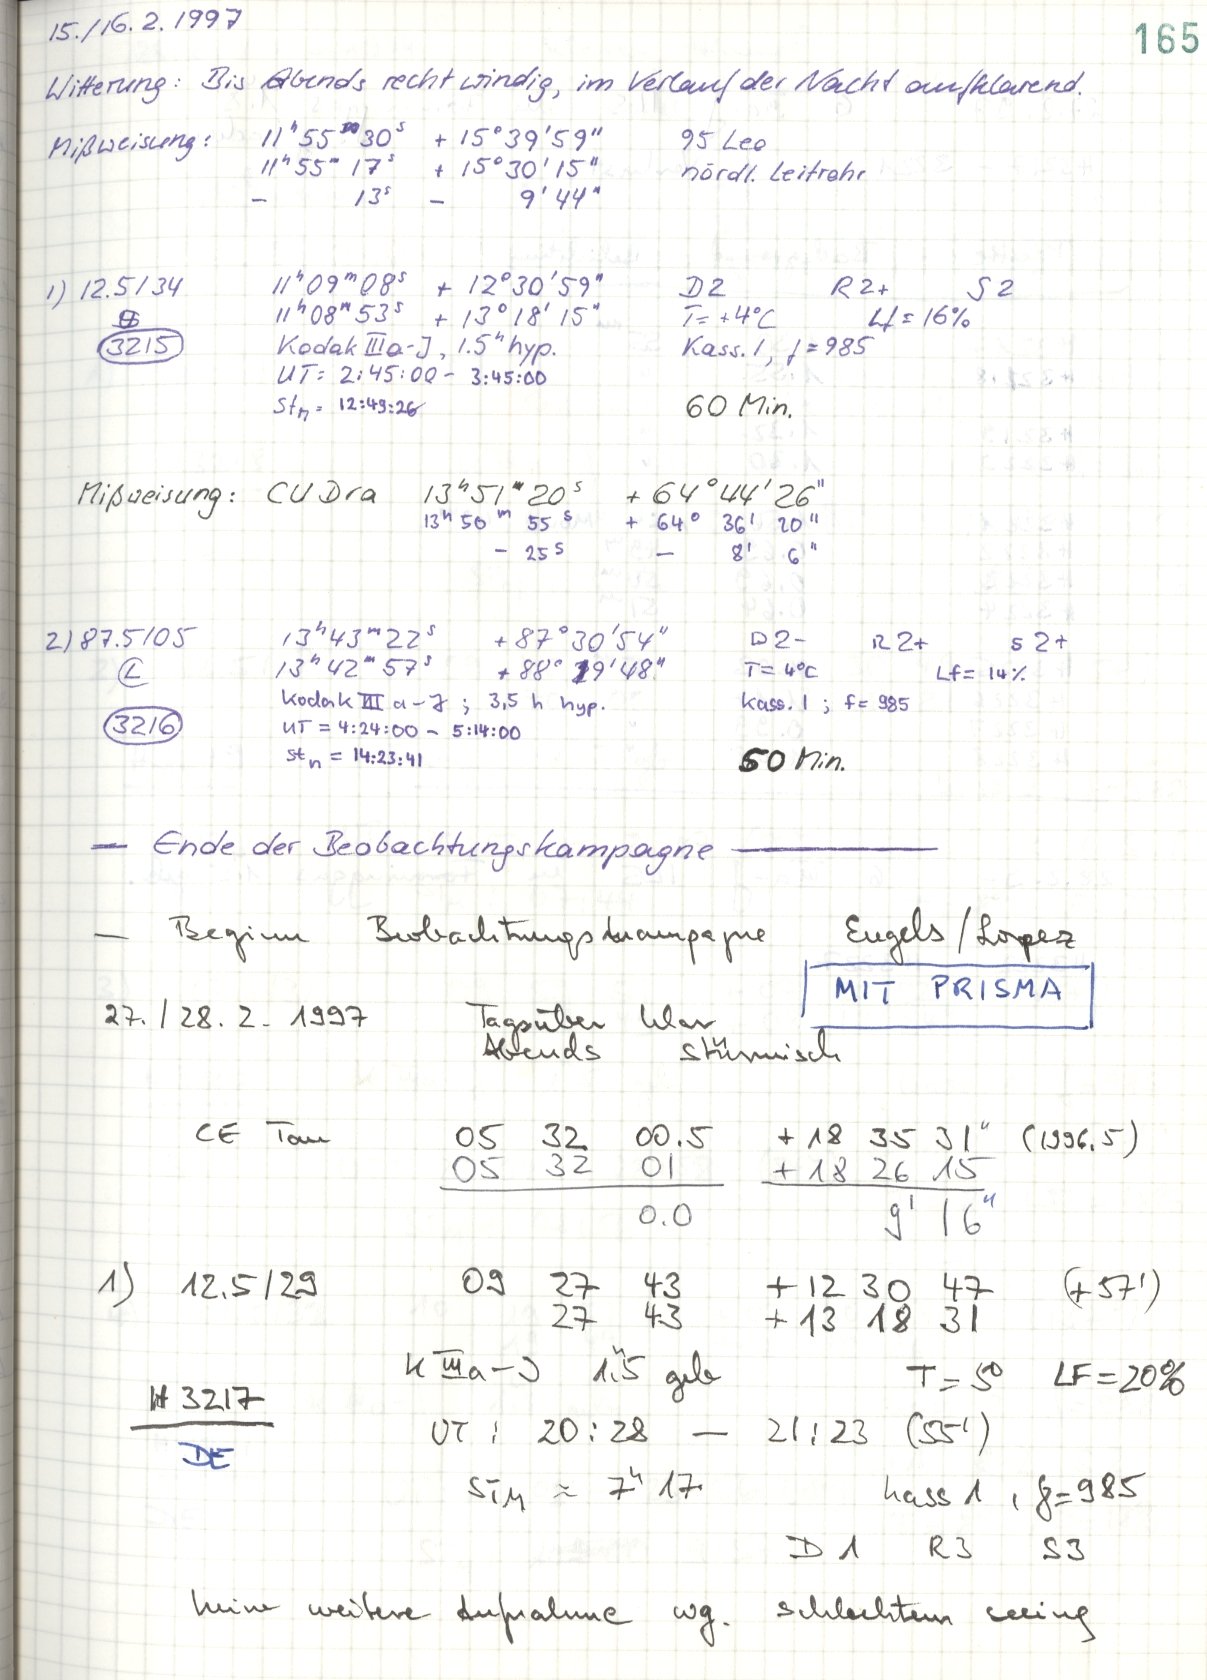 15./16.2.1997
165
Witterung: Bis Abends recht windig, im Verlauf der Nacht aufklarend.
Mißweisung: 11ʰ55ᵐ30ˢ + 15°39'59" 95 Leo
11ʰ55ᵐ17ˢ + 15°30'15" nördl. Leitrohr
- 13ˢ - 9'44"
1) 12.5/34 11ʰ09ᵐ08ˢ + 12°30'59" D2 R2+ S2
11ʰ08ᵐ53ˢ + 13°18'15" T=+4°C Lf=16%
3215 Kodak IIIa-J, 1.5ʰ hyp. Kass. 1, f=985
UT: 2:45:00 - 3:45:00
Stₙ = 12:49:26 60 Min.
Mißweisung: CU Dra 13ʰ51ᵐ20ˢ + 64°44'26"
13ʰ50ᵐ55ˢ + 64° 36' 20"
- 25ˢ - 8' 6"
2) 87.5/05 13ʰ43ᵐ22ˢ +87°30'54" D2- R2+ S2+
L 13ʰ42ᵐ57ˢ +88°19'48" T=4°C Lf=14%
Kodak III a-J ; 3,5 h hyp. Kass. 1 ; f=985
3216 UT = 4:24:00 - 5:14:00
Stₙ = 14:23:41 50 Min.
— Ende der Beobachtungskampagne —
— Beginn Beobachtungskampagne Engels/Lopez
MIT PRISMA
27./28.2.1997 Tagsüber klar
Abends stürmisch
CE Tau 05 32 00.5 +18 35 31" (1996.5)
05 32 01 +18 26 15
0.0 9' 16"
1) 12.5/29 09 27 43 +12 30 47 (+57')
27 43 +13 18 31
K IIIa-J 1ʰ.5 geb T=5° LF=20%
H 3217
UT: 20:28 — 21:23 (55')
DE
STM ≈ 7ʰ17 Kass 1, f=985
D1 R3 S3
Keine weitere Aufnahme wg. schlechtem seeing